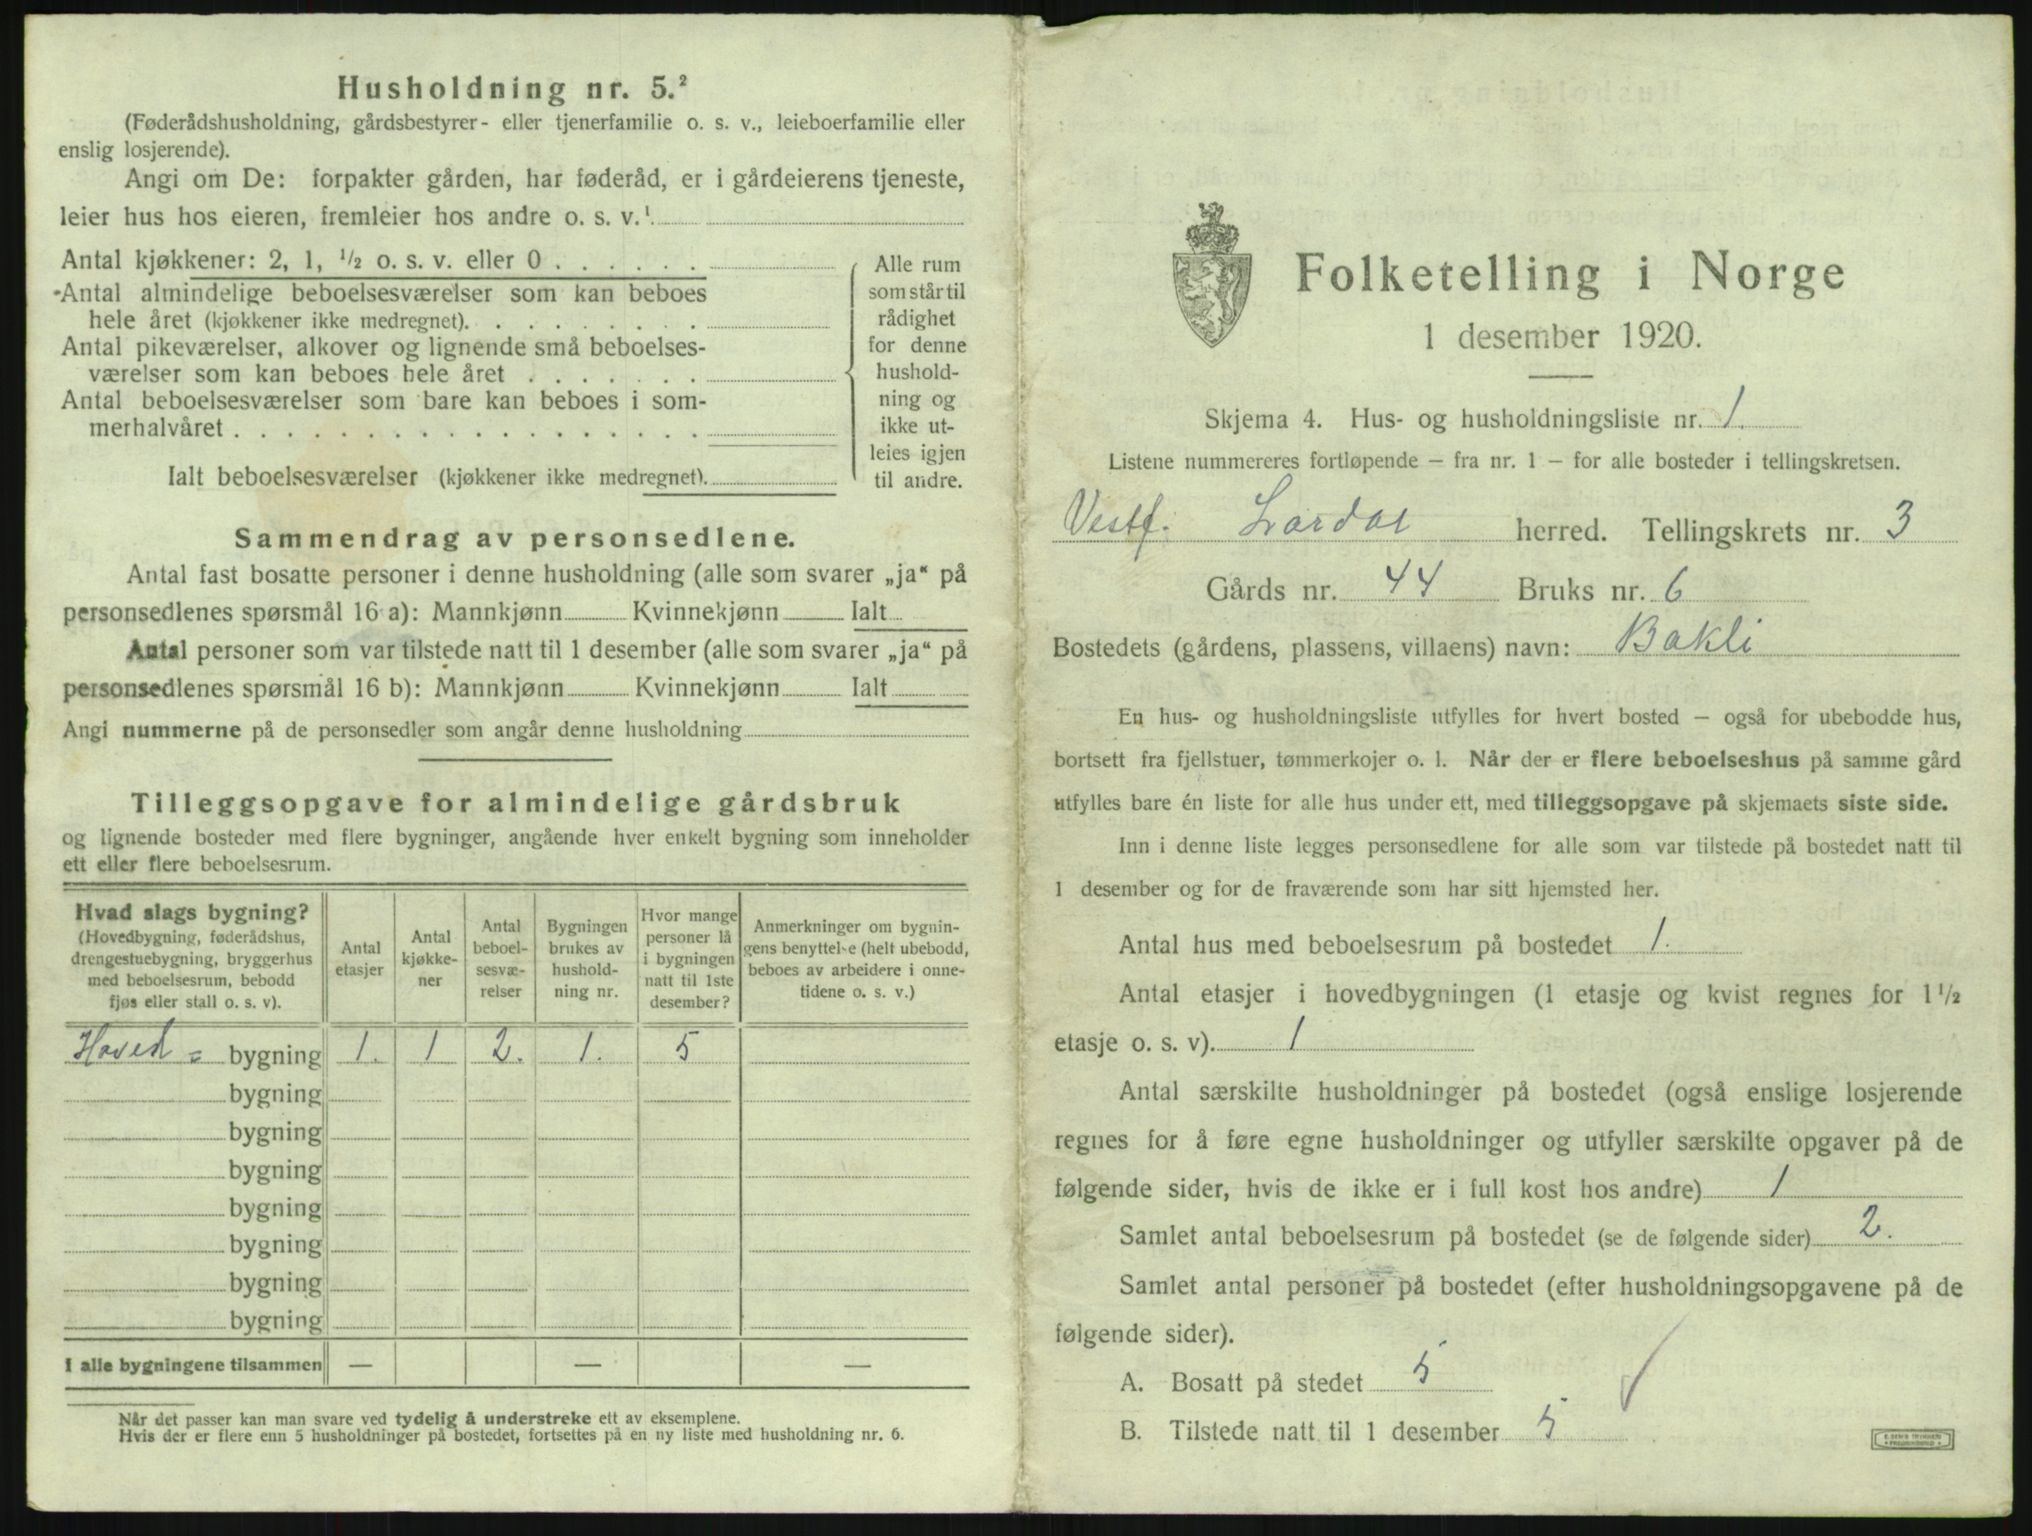 Husholdning nr. 5.²
(Føderådshusholdning, gårdsbestyrer- eller tjenerfamilie o. s. v., leieboerfamilie eller
enslig losjerende).
Angi om De: forpakter gården, har føderåd, er i gårdeierens tjeneste,
leier hus hos eieren, fremleier hos andre o. s. v.¹
Antal kjøkkener: 2, 1, ½ o. s. v. eller 0 . . . . . .
Antal almindelige beboelsesværelser som kan beboes
hele året (kjøkkener ikke medregnet). . . . . . . . .
Antal pikeværelser, alkover og lignende små beboelses-
værelser som kan beboes hele året . . . . . . .
Antal beboelsesværelser som bare kan beboes i som-
merhalvåret . . . . . . . . . . . . . . . . . .
Ialt beboelsesværelser (kjøkkener ikke medregnet).
Alle rum
som står til
rådighet
for denne
hushold-
ning og
ikke ut-
leies igjen
til andre.
Sammendrag av personsedlene.
Antal fast bosatte personer i denne husholdning (alle som svarer „ja“ på
personsedlenes spørsmål 16 a): Mannkjønn Kvinnekjønn Ialt
Antal personer som var tilstede natt til 1 desember (alle som svarer „ja“ på
personsedlenes spørsmål 16 b): Mannkjønn Kvinnekjønn Ialt
Angi nummerne på de personsedler som angår denne husholdning
Tilleggsopgave for almindelige gårdsbruk
og lignende bosteder med flere bygninger, angående hver enkelt bygning som inneholder
ett eller flere beboelsesrum.
Hvad slags bygning?
(Hovedbygning, føderådshus,
drengestuebygning, bryggerhus
med beboelsesrum, bebodd
fjøs eller stall o. s. v).
Antal
etasjer
Antal
kjøkke-
ner
Antal
beboel-
sesvæ-
relser
Bygningen
brukes av
hushold-
ning nr.
Hvor mange
personer lå
i bygningen
natt til 1ste
desember?
Anmerkninger om bygnin-
gens benyttelse (helt ubebodd,
beboes av arbeidere i onne-
tidene o. s. v.)
Hoved- bygning 1. 1 2. 1. 5
bygning
bygning
bygning
bygning
bygning
bygning
bygning
I alle bygningene tilsammen — — —
Når det passer kan man svare ved tydelig å understreke ett av eksemplene.
Hvis der er flere enn 5 husholdninger på bostedet, fortsettes på en ny liste med husholdning nr. 6.
Folketelling i Norge
1 desember 1920.
Skjema 4. Hus- og husholdningsliste nr. 1.
Listene nummereres fortløpende — fra nr. 1 — for alle bosteder i tellingskretsen.
Vestf. Lardal herred. Tellingskrets nr. 3
Gårds nr. 44 Bruks nr. 6
Bostedets (gårdens, plassens, villaens) navn: Bakli
En hus- og husholdningsliste utfylles for hvert bosted — også for ubebodde hus,
bortsett fra fjellstuer, tømmerkojer o. l. Når der er flere beboelseshus på samme gård
utfylles bare én liste for alle hus under ett, med tilleggsopgave på skjemaets siste side.
Inn i denne liste legges personsedlene for alle som var tilstede på bostedet natt til
1 desember og for de fraværende som har sitt hjemsted her.
Antal hus med beboelsesrum på bostedet 1.
Antal etasjer i hovedbygningen (1 etasje og kvist regnes for 1½
etasje o. s. v). 1
Antal særskilte husholdninger på bostedet (også enslige losjerende
regnes for å føre egne husholdninger og utfyller særskilte opgaver på de
følgende sider, hvis de ikke er i full kost hos andre) 1
Samlet antal beboelsesrum på bostedet (se de følgende sider) 2.
Samlet antal personer på bostedet (efter husholdningsopgavene på de
følgende sider).
A. Bosatt på stedet 5
B. Tilstede natt til 1 desember 5